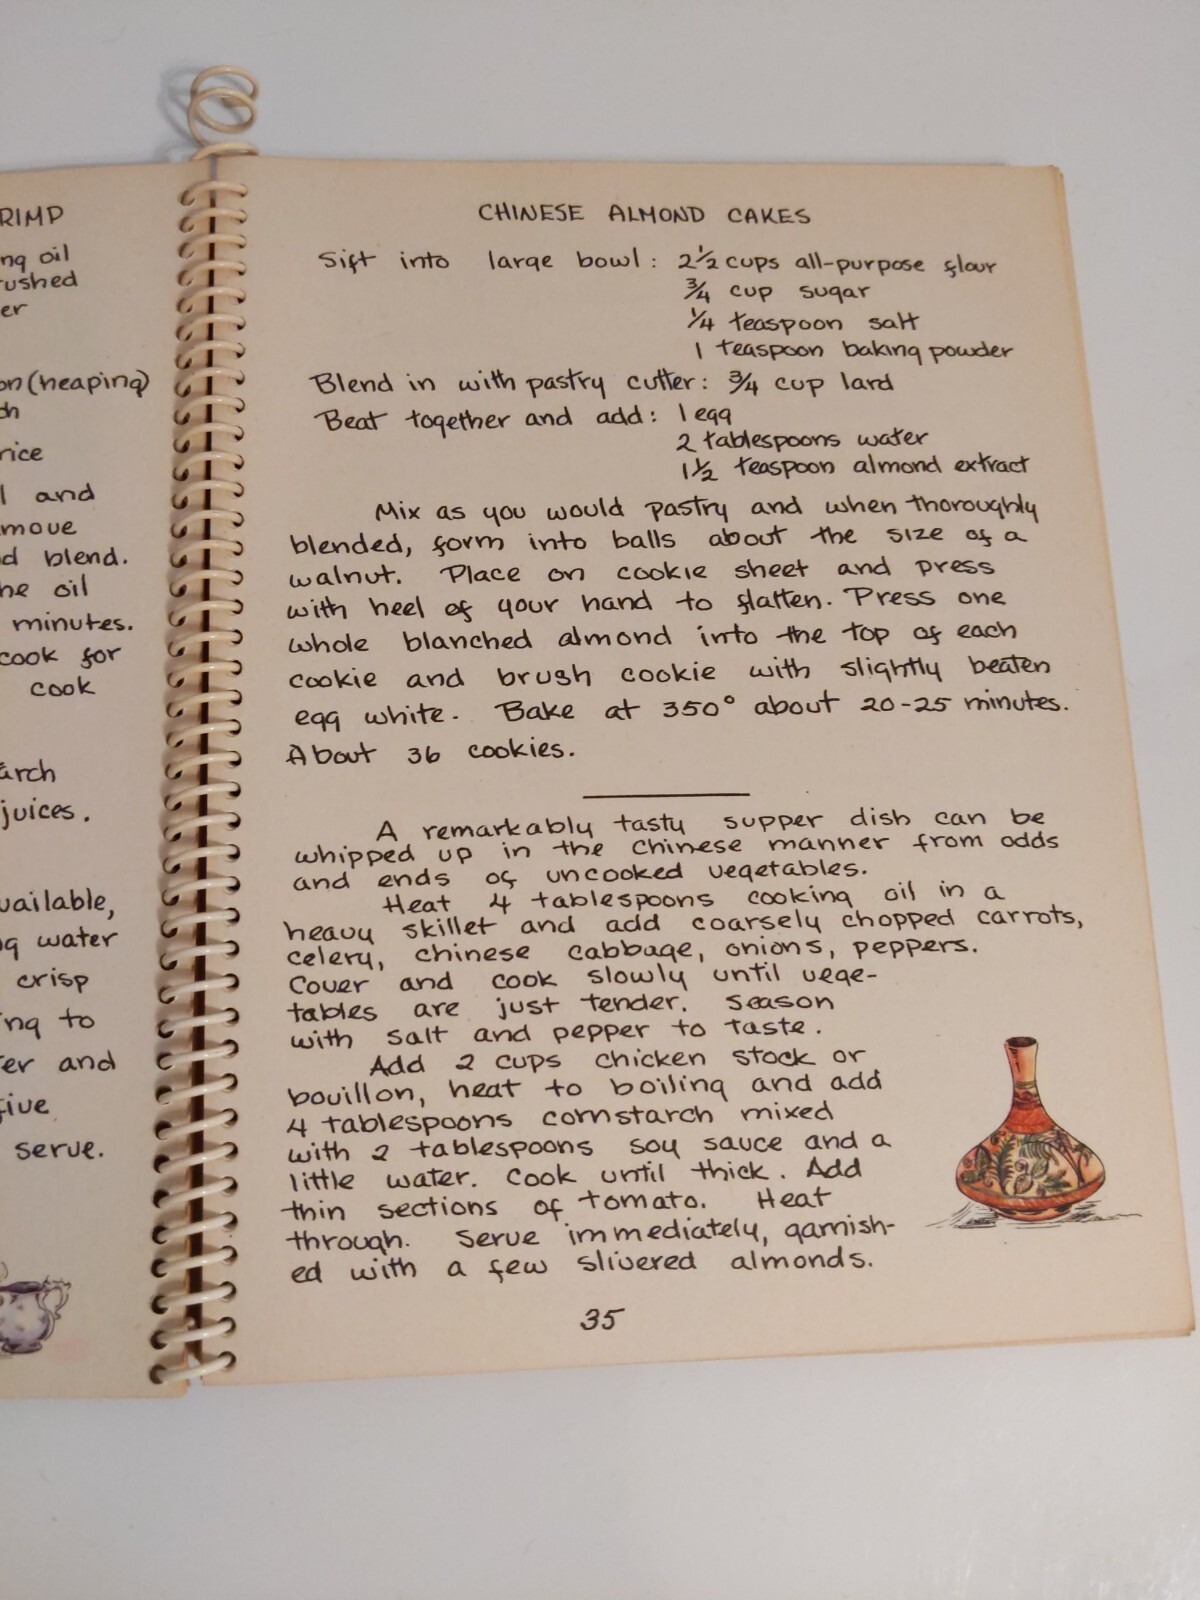 RIMP
ng oil
rushed
er
on (heaping)
ch
rice
l and
move
d blend.
he oil
minutes.
cook for
cook
arch
juices.
vailable,
ng water
crisp
ing to
er and
five
serve.
CHINESE ALMOND CAKES
Sift into large bowl: 2½ cups all-purpose flour
¾ cup sugar
¼ teaspoon salt
1 teaspoon baking powder
Blend in with pastry cutter: ¾ cup lard
Beat together and add: 1 egg
2 tablespoons water
1½ teaspoon almond extract
Mix as you would pastry and when thoroughly
blended, form into balls about the size of a
walnut. Place on cookie sheet and press
with heel of your hand to flatten. Press one
whole blanched almond into the top of each
cookie and brush cookie with slightly beaten
egg white. Bake at 350° about 20-25 minutes.
About 36 cookies.
A remarkably tasty supper dish can be
whipped up in the Chinese manner from odds
and ends of uncooked vegetables.
Heat 4 tablespoons cooking oil in a
heavy skillet and add coarsely chopped carrots,
celery, chinese cabbage, onions, peppers.
Cover and cook slowly until vege-
tables are just tender. Season
with salt and pepper to taste.
Add 2 cups chicken stock or
bouillon, heat to boiling and add
4 tablespoons cornstarch mixed
with 2 tablespoons soy sauce and a
little water. Cook until thick. Add
thin sections of tomato. Heat
through. Serve immediately, garnish-
ed with a few slivered almonds.
35